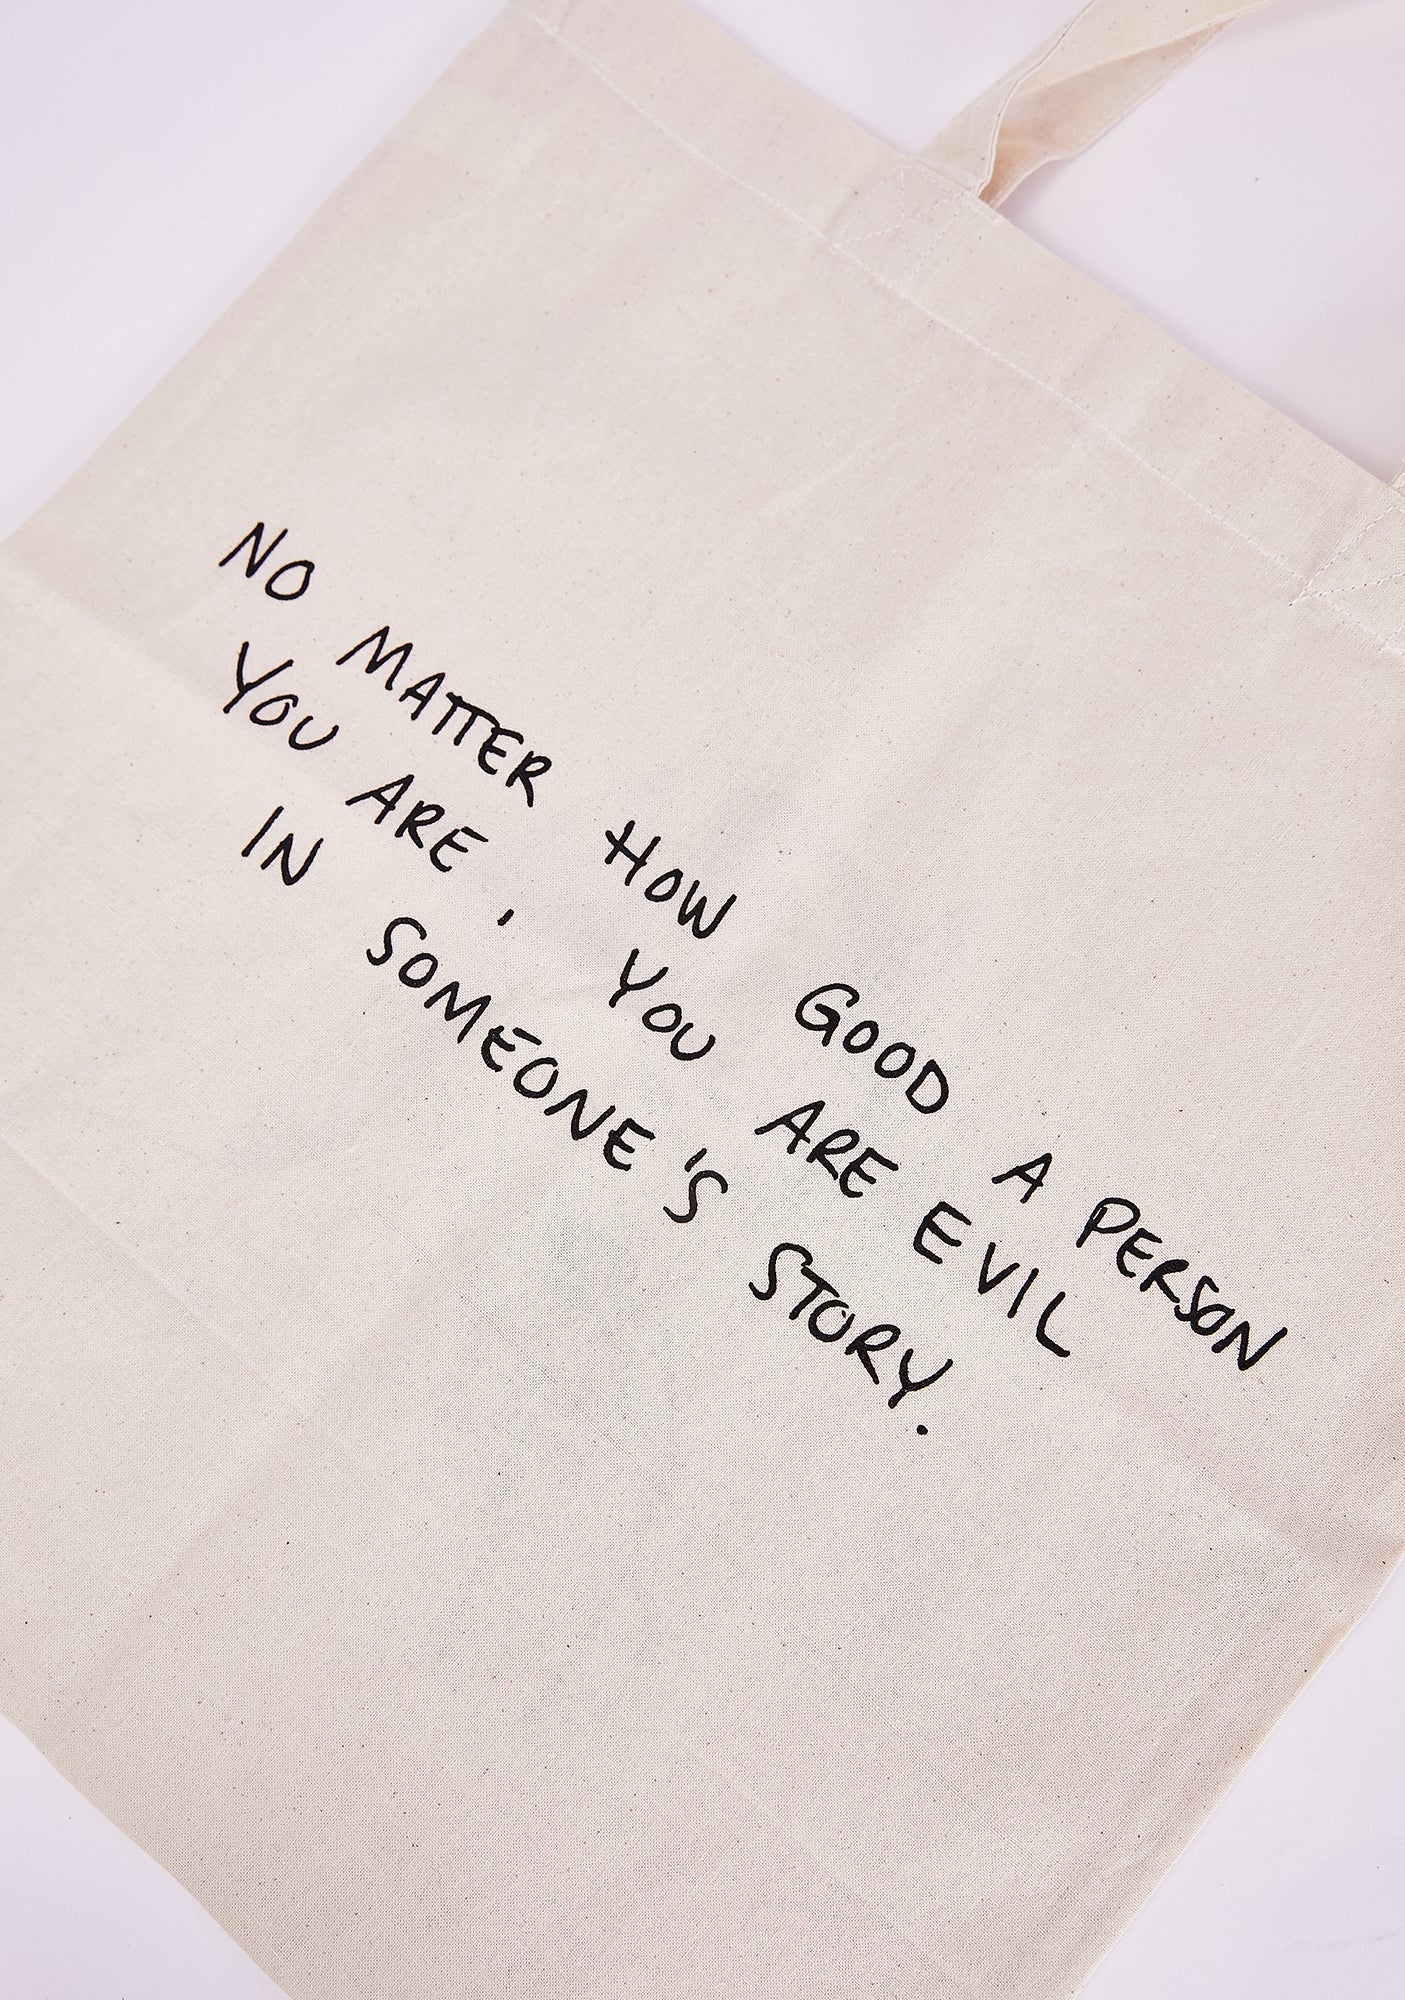 NO MATTER HOW GOOD A PERSON
YOU ARE, YOU ARE EVIL
IN SOMEONE'S STORY.